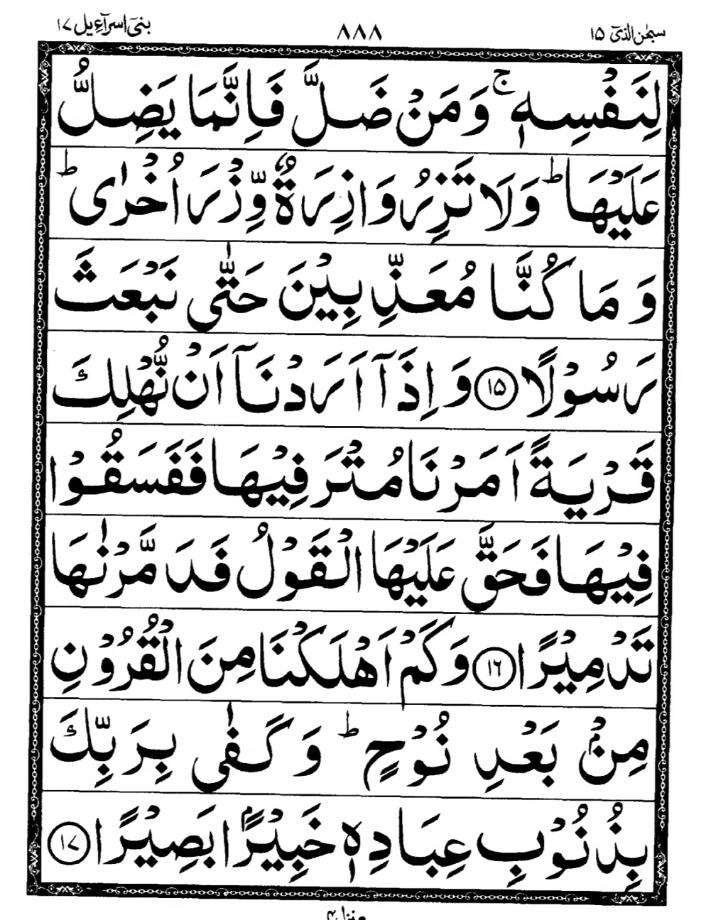 بنی اسرآءیل ۱۷ ۸۸۸ سبحٰن الذی ۱۵
لِنَفْسِهٖ ۚ وَمَنْ ضَلَّ فَاِنَّمَا يَضِلُّ
عَلَيْهَا ؕ وَلَا تَزِرُ وَازِرَةٌ وِّزْرَ اُخْرٰى ؕ
وَمَا كُنَّا مُعَذِّبِيْنَ حَتّٰى نَبْعَثَ
رَسُوْلًا ۝۱۵ وَاِذَاۤ اَرَدْنَاۤ اَنْ نُّهْلِكَ
قَرْيَةً اَمَرْنَا مُتْرَفِيْهَا فَفَسَقُوْا
فِيْهَا فَحَقَّ عَلَيْهَا الْقَوْلُ فَدَمَّرْنٰهَا
تَدْمِيْرًا ۝۱۶ وَكَمْ اَهْلَكْنَا مِنَ الْقُرُوْنِ
مِنْۢ بَعْدِ نُوْحٍ ؕ وَكَفٰى بِرَبِّكَ
بِذُنُوْبِ عِبَادِهٖ خَبِيْرًۢا بَصِيْرًا ۝۱۷
منزل ۴